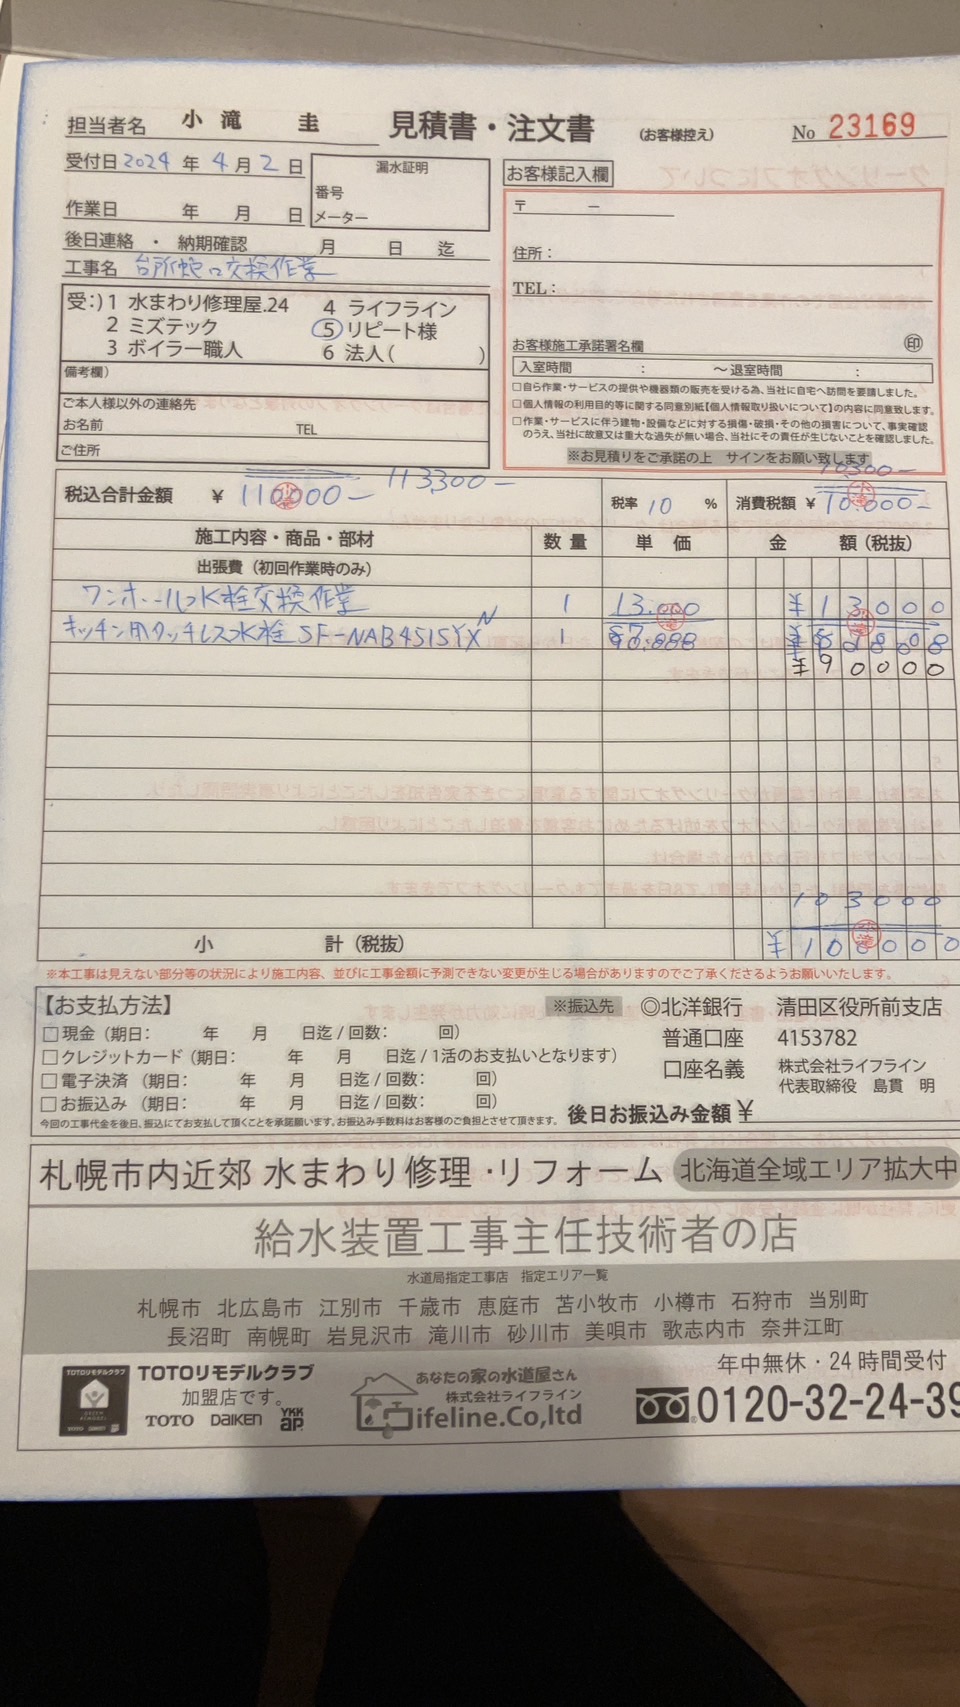 担当者名 小滝 圭 見積書・注文書 (お客様控え) No 23169
受付日 2024 年 4 月 2 日
作業日 年 月 日
漏水証明
番号
メーター
後日連絡 ・ 納期確認 月 日 迄
工事名 台所蛇口交換作業
受:) 1 水まわり修理屋.24 4 ライフライン
2 ミズテック ⑤ リピート様
3 ボイラー職人 6 法人( )
備考欄)
ご本人様以外の連絡先
お名前 TEL
ご住所
お客様記入欄
〒 −
住所：
TEL：
お客様施工承諾署名欄 ㊞
入室時間 ： 〜退室時間 ：
□自ら作業・サービスの提供や機器類の販売を受ける為、当社に自宅へ訪問を要請しました。
□個人情報の利用目的等に関する同意別紙【個人情報取り扱いについて】の内容に同意致します。
□作業・サービスに伴う建物・設備などに対する損傷・破損・その他の損害について、事実確認
のうえ、当社に故意又は重大な過失が無い場合、当社にその責任が生じないことを確認しました。
※お見積りをご承諾の上 サインをお願い致します
税込合計金額 ￥ 110000− 113300−
税率 10 % 消費税額 ￥ 10.000− 10300−
施工内容・商品・部材 数量 単価 金額(税抜)
出張費(初回作業時のみ)
ワンホール水栓交換作業 1 13.000 ¥13000
キッチン用タッチレス水栓 SF-NAB451SYXN 1
¥90000
103000
小計(税抜) ¥100000
※本工事は見えない部分等の状況により施工内容、並びに工事金額に予測できない変更が生じる場合がありますのでご了承くださるようお願いいたします。
【お支払方法】
□現金(期日： 年 月 日迄/回数： 回)
□クレジットカード(期日： 年 月 日迄/1活のお支払いとなります)
□電子決済 (期日： 年 月 日迄/回数： 回)
□お振込み (期日： 年 月 日迄/回数： 回)
今回の工事代金を後日、振込にてお支払して頂くことを承諾願います。お振込み手数料はお客様のご負担とさせて頂きます。
※振込先 ◎北洋銀行 清田区役所前支店
普通口座 4153782
口座名義 株式会社ライフライン
代表取締役 島貫 明
後日お振込み金額￥
札幌市内近郊 水まわり修理・リフォーム 北海道全域エリア拡大中
給水装置工事主任技術者の店
水道局指定工事店 指定エリア一覧
札幌市 北広島市 江別市 千歳市 恵庭市 苫小牧市 小樽市 石狩市 当別町
長沼町 南幌町 岩見沢市 滝川市 砂川市 美唄市 歌志内市 奈井江町
TOTOリモデルクラブ
TOTOリモデルクラブ
加盟店です。
TOTO DAIKEN YKK ap
あなたの家の水道屋さん
株式会社ライフライン
ifeline.Co,ltd
年中無休・24時間受付
0120-32-24-39